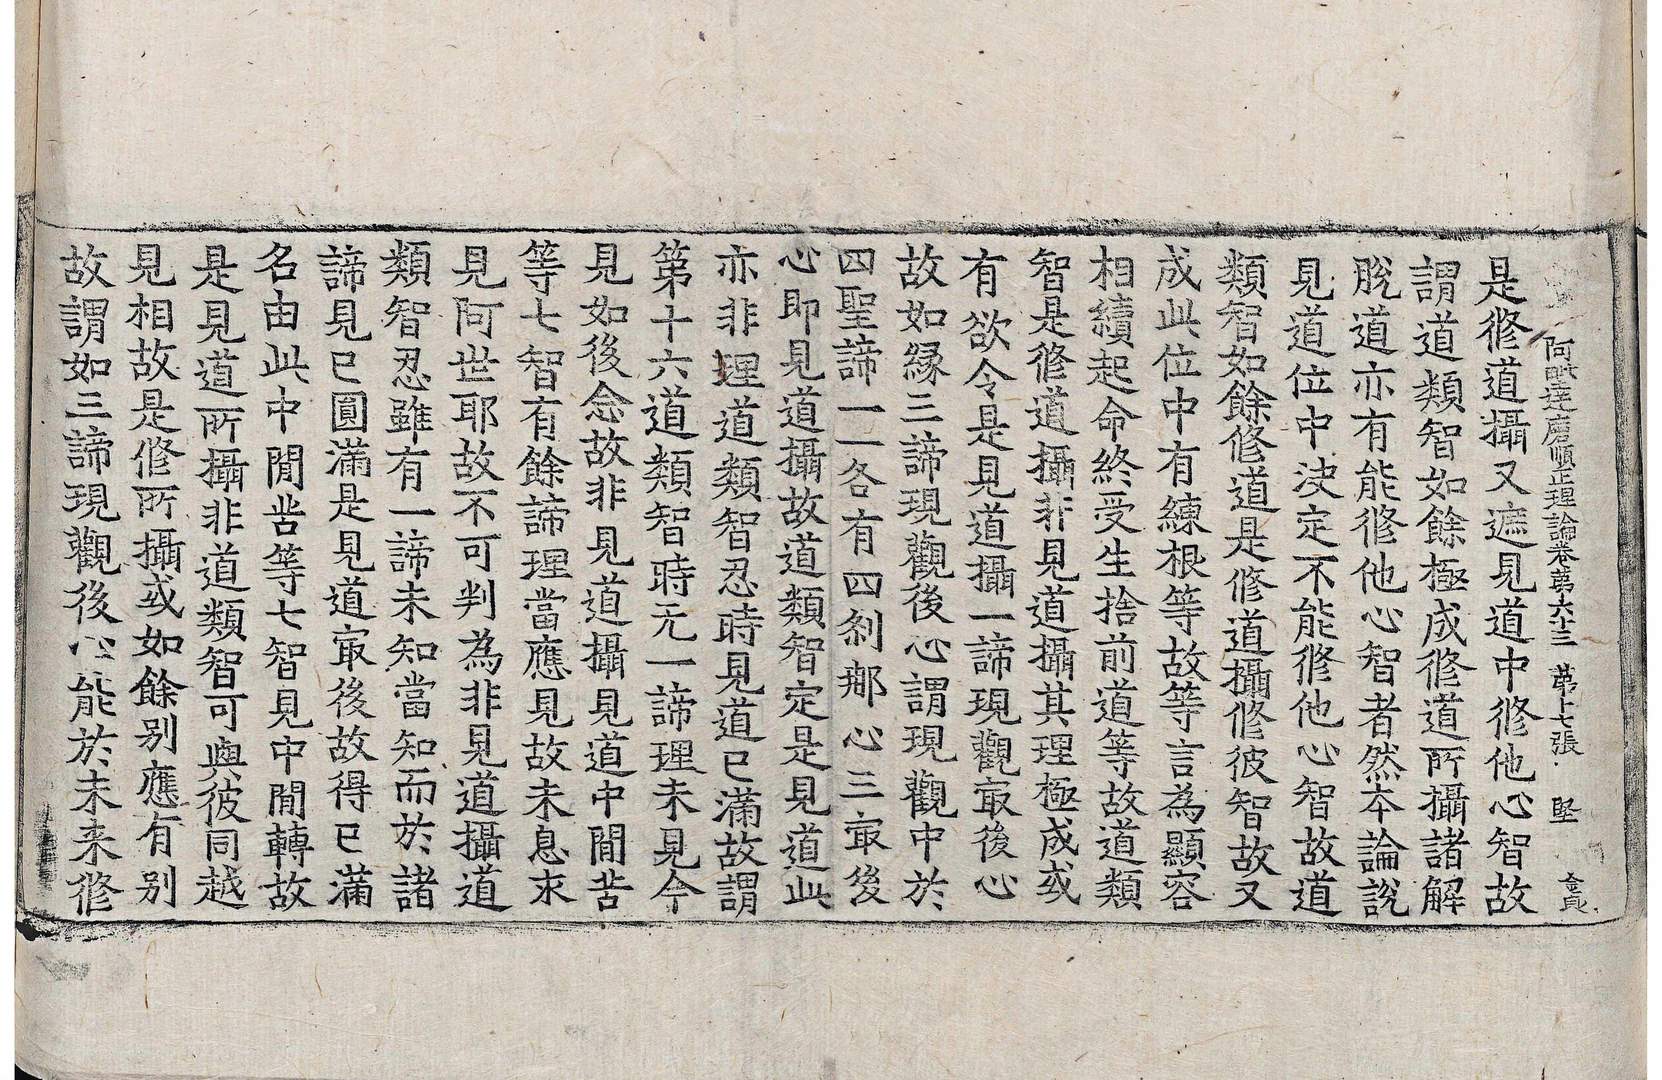 阿毗達磨順正理論卷第六十三　第十七張　堅
是修道攝又遮見道中修他心智故
謂道類智如餘極成修道所攝諸解
脫道亦有能修他心智者然本論說
見道位中決定不能修他心智故道
類智如餘修道是修道攝修彼智故又
成此位中有練根等故等言為顯容
相續起命終受生捨前道等故道類
智是修道攝非見道攝其理極成或
有欲令是見道攝一諦現觀㝡後心
故如緣三諦現觀後心謂現觀中於
四聖諦一一各有四剎那心三㝡後
心即見道攝故道類智定是見道此
亦非理道類智忍時見道已滿故謂
第十六道類智時无一諦理未見今
見如後念故非見道攝見道中間苦
等七智有餘諦理當應見故未息求
見阿世耶故不可判為非見道攝道
類智忍雖有一諦未知當知而於諸
諦見已圓滿是見道㝡後故得已滿
名由此中間苦等七智見中間轉故
是見道所攝非道類智可與彼同越
見相故是修所攝或如餘別應有別
故謂如三諦現觀後心能於未來修